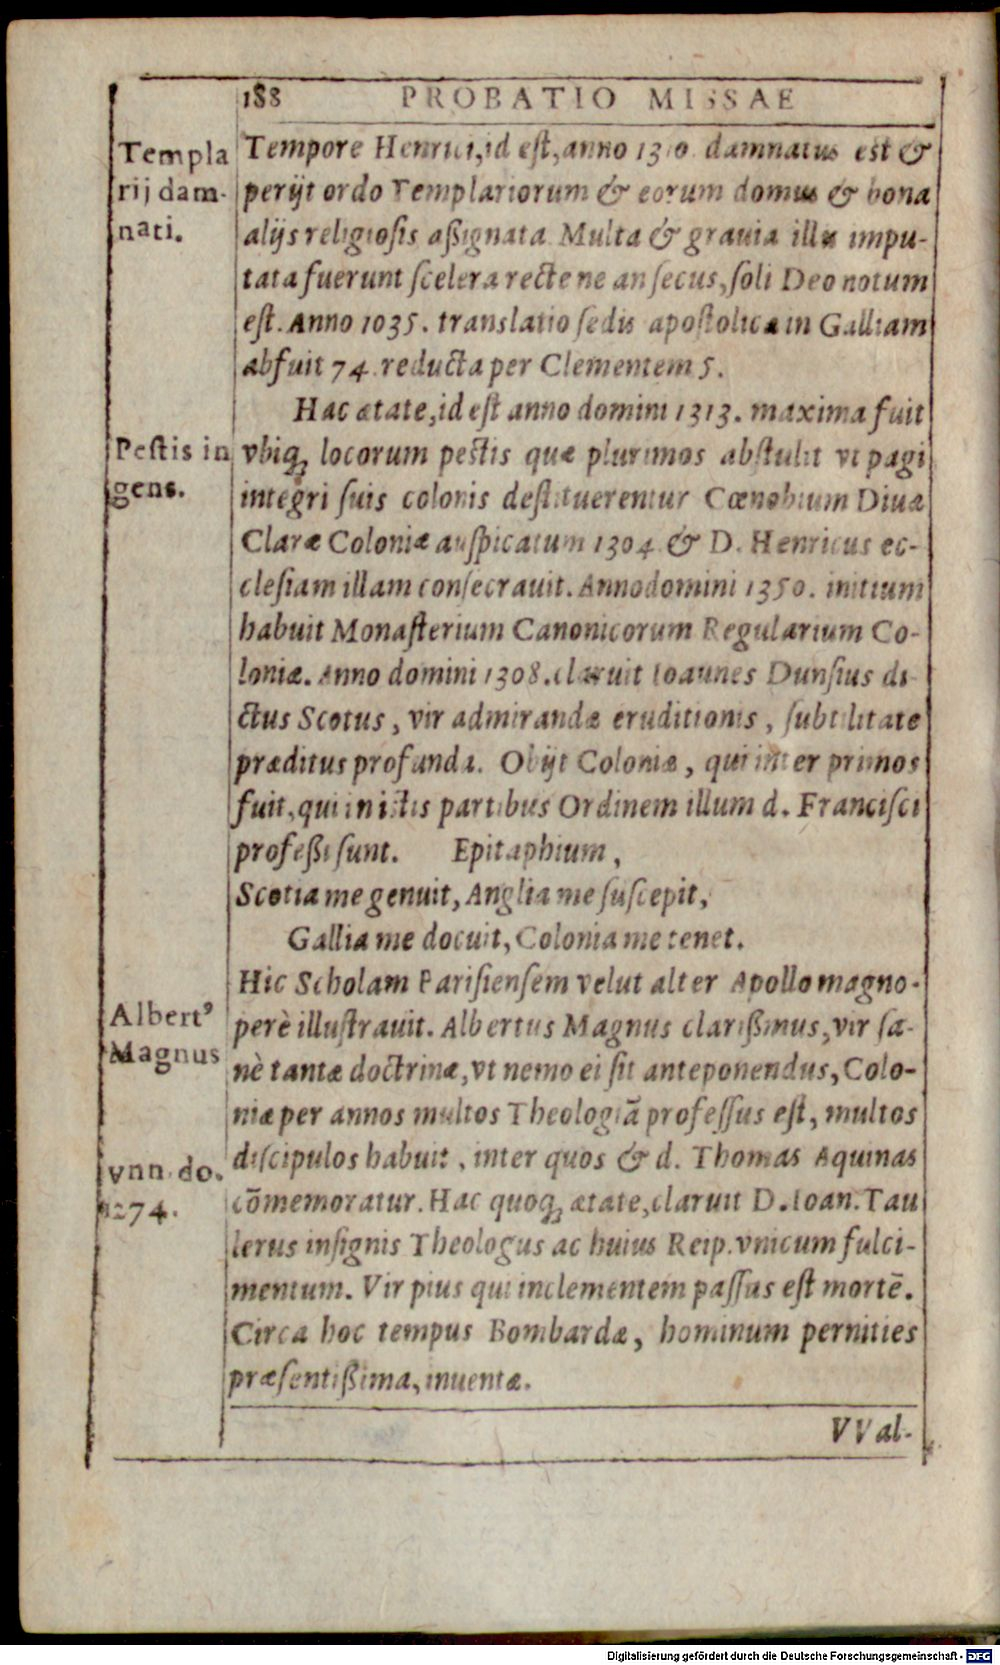 188 PROBATIO MISSAE
Templa
rij dam-
nati.
Tempore Henrici, id est, anno 1310. damnatus est &
perijt ordo Templariorum & eorum domus & bona
alijs religiosis aßignata. Multa & grauia illis impu-
tata fuerunt scelera recte ne an secus, soli Deo notum
est. Anno 1035. translatio sedis apostolicæ in Galliam
abfuit 74. reducta per Clementem 5.
Hac ætate, id est anno domini 1313. maxima fuit
Pestis in
gens.
vbiq; locorum pestis quæ plurimos abstulit vt pagi
integri suis colonis destituerentur Cœnobium Diuæ
Claræ Coloniæ auspicatum 1304 & D. Henricus ec-
clesiam illam consecrauit. Anno domini 1350. initium
habuit Monasterium Canonicorum Regularium Co-
loniæ. Anno domini 1308. claruit Ioannes Dunsius di-
ctus Scotus, vir admirandæ eruditionis, subtilitate
præditus profunda. Obijt Coloniæ, qui inter primos
fuit, qui in istis partibus Ordinem illum d. Francisci
profeßi sunt. Epitaphium,
Scotia me genuit, Anglia me suscepit,
Gallia me docuit, Colonia me tenet.
Hic Scholam Parisiensem velut alter Apollo magno-
Albert⁹
Magnus
perè illustrauit. Albertus Magnus clarißimus, vir sa-
nè tantæ doctrinæ, vt nemo ei sit anteponendus, Colo-
niæ per annos multos Theologiā professus est, multos
discipulos habuit, inter quos & d. Thomas Aquinas
Ann. do.
1274.
cōmemoratur. Hac quoq; ætate, claruit D. Ioan. Tau
lerus insignis Theologus ac huius Reip. vnicum fulci-
mentum. Vir pius qui inclementem passus est mortē.
Circa hoc tempus Bombardæ, hominum pernities
præsentißima, inuentæ.
VVal-
Digitalisierung gefördert durch die Deutsche Forschungsgemeinschaft - DFG